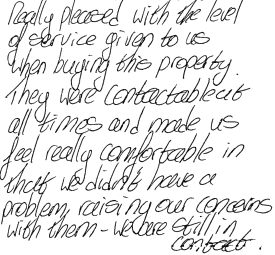 Really pleased with the level
of service given to us
when buying this property.
They were contactable at
all times and made us
feel really comfortable in
that we didn't have a
problem raising our concerns
with them - we are still in
contact.